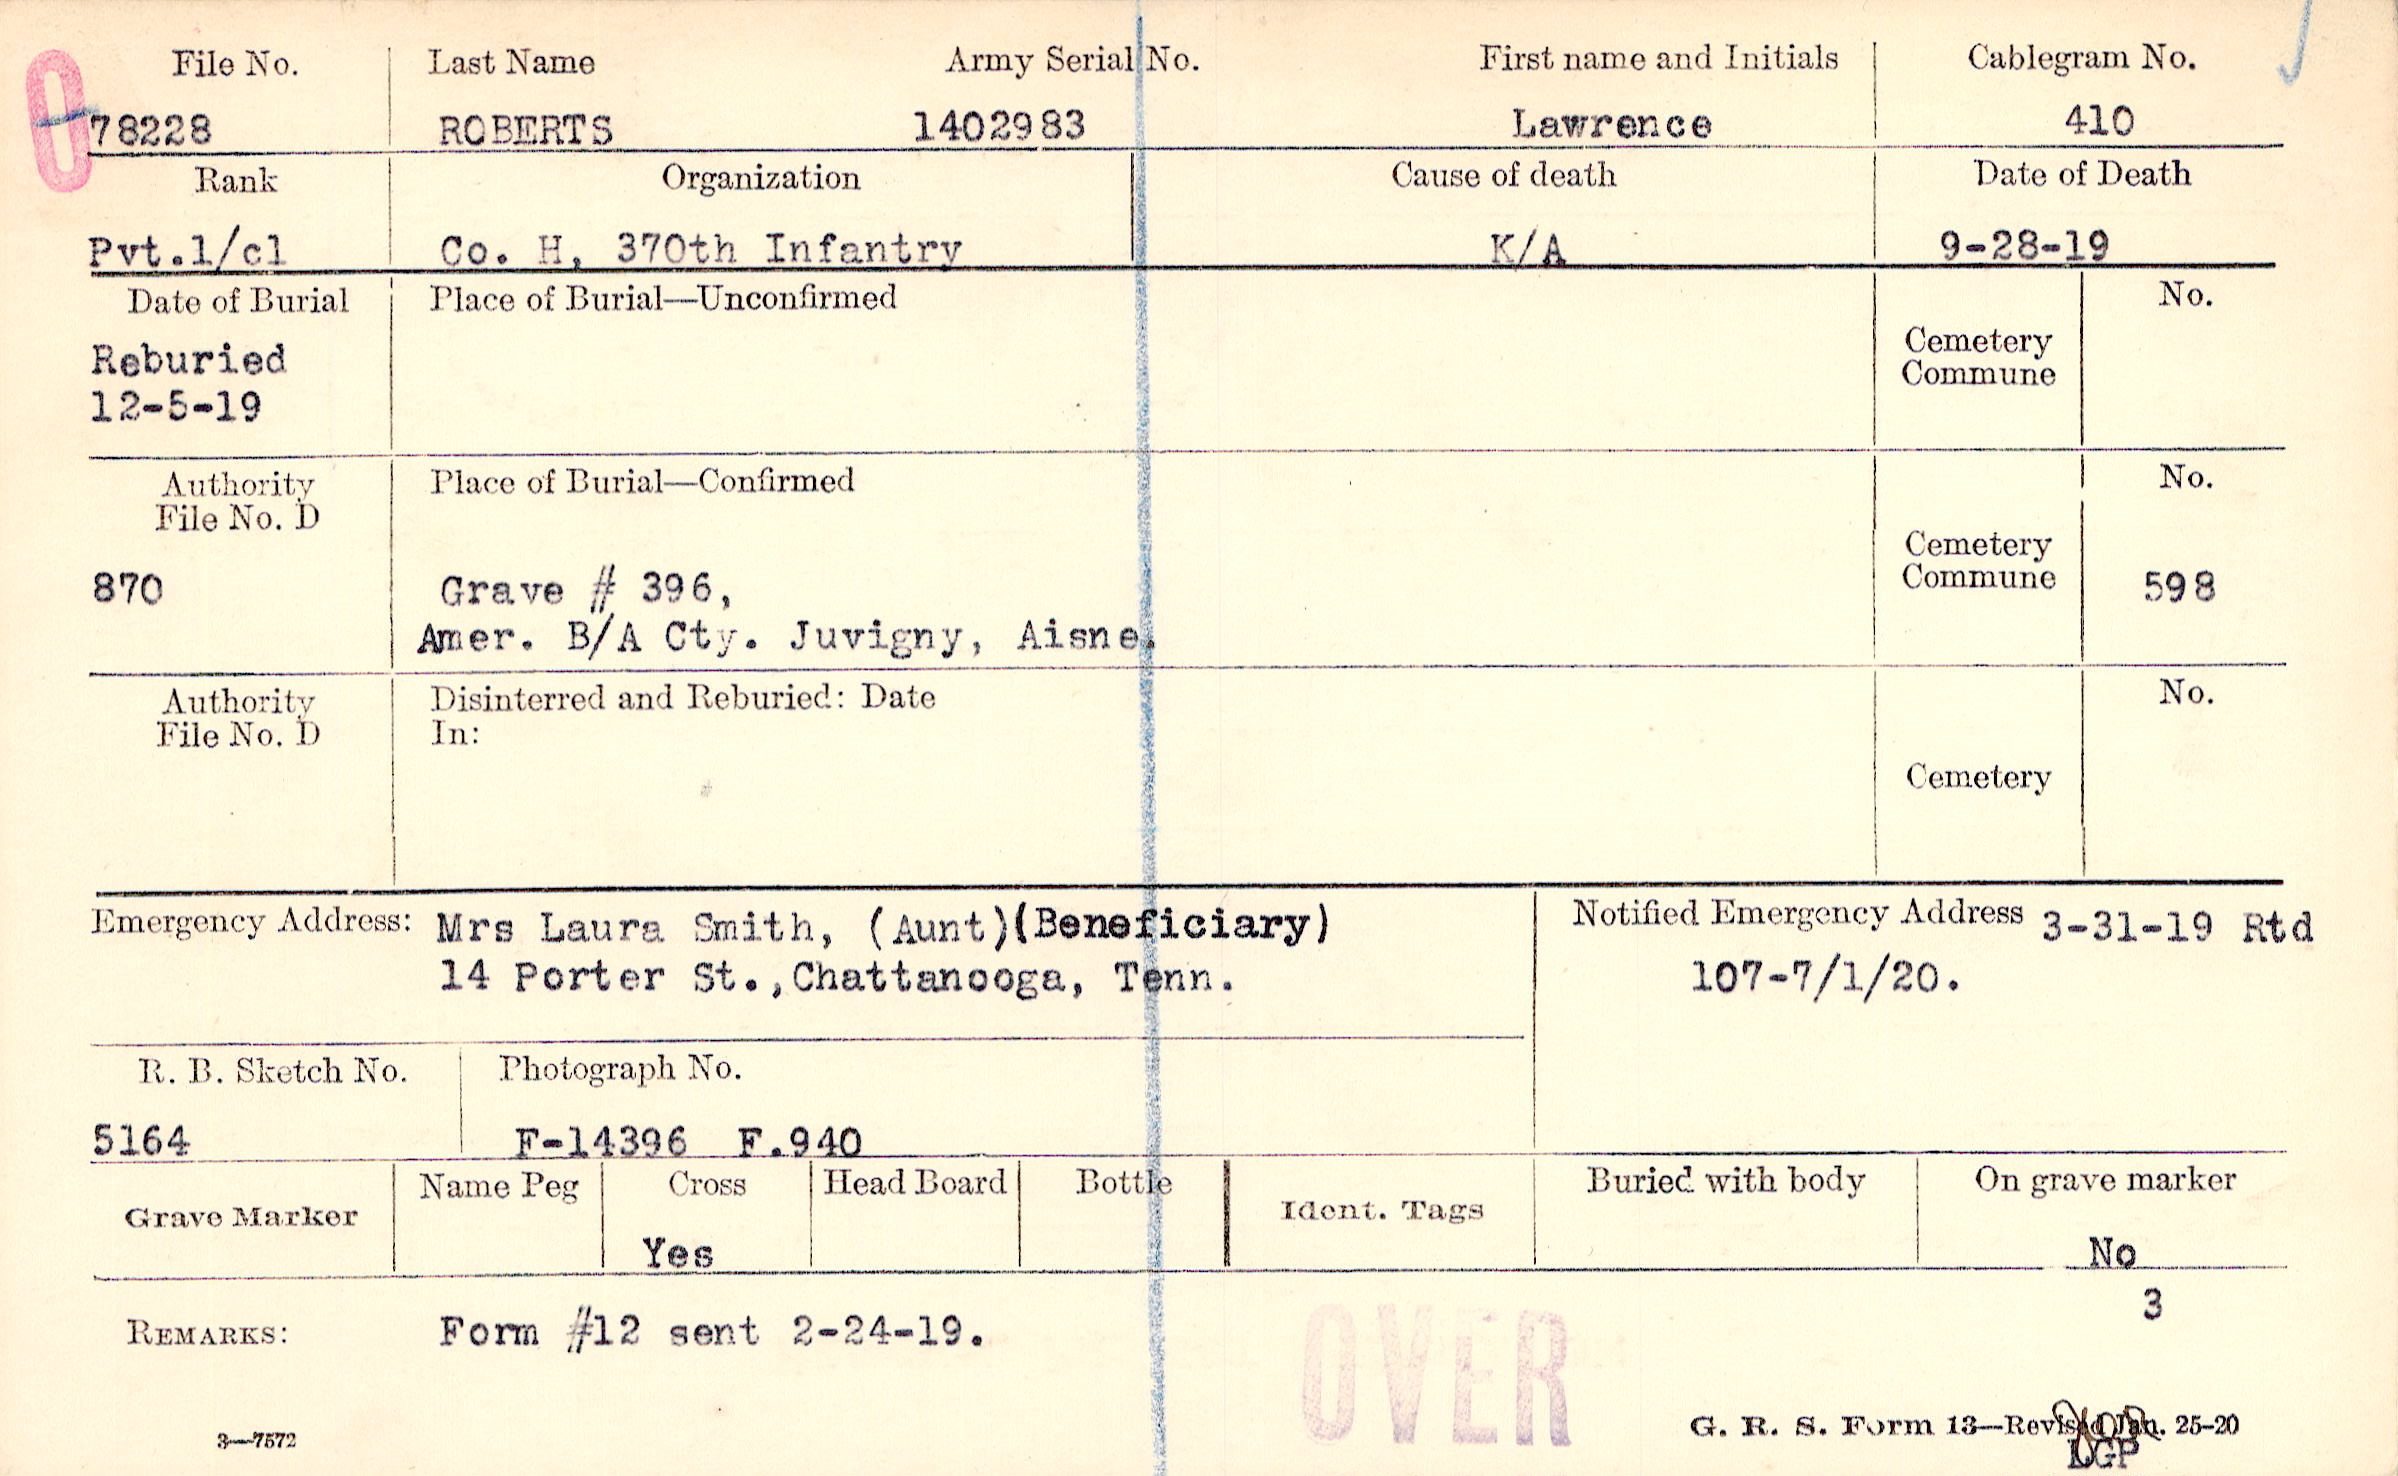 File No. Last Name Army Serial No. First name and Initials Cablegram No.
0
78228 ROBERTS 1402983 Lawrence 410
Rank Organization Cause of death Date of Death
Pvt.1/cl Co. H, 370th Infantry K/A 9-28-19
Date of Burial Place of Burial—Unconfirmed No.
Reburied
12-5-19
Cemetery
Commune
Authority Place of Burial—Confirmed No.
File No. D
Cemetery
Commune
870 Grave # 396, 598
Amer. B/A Cty. Juvigny, Aisne.
Authority Disinterred and Reburied: Date No.
File No. D In:
Cemetery
Emergency Address: Mrs Laura Smith, (Aunt)(Beneficiary)
14 Porter St.,Chattanooga, Tenn.
Notified Emergency Address 3-31-19 Rtd
107-7/1/20.
R. B. Sketch No. Photograph No.
5164 F-14396 F.940
Grave Marker Name Peg Cross Head Board Bottle Ident. Tags Buried with body On grave marker
Yes No
3
REMARKS: Form #12 sent 2-24-19.
OVER
3—7572
G. R. S. Form 13—Revised Jan. 25-20
LGP